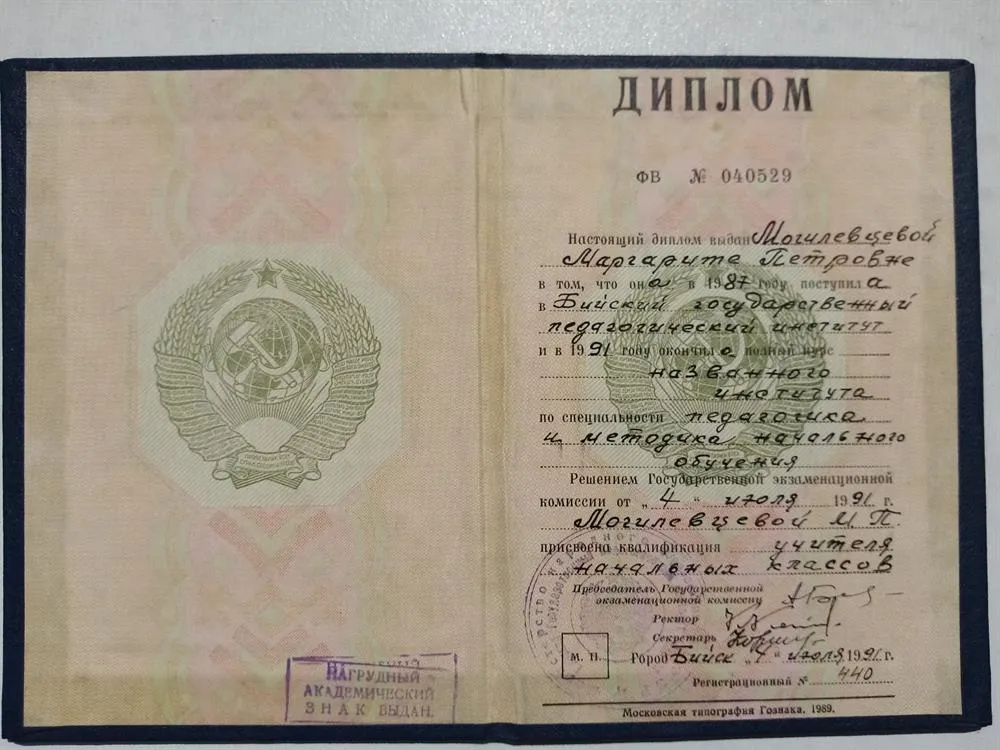 НАГРУДНЫЙ
АКАДЕМИЧЕСКИЙ
ЗНАК ВЫДАН.
ДИПЛОМ
ФВ № 040529
Настоящий диплом выдан Могилевцевой
Маргарите Петровне
в том, что она в 1987 году поступила
в Бийский государственный
педагогический институт
и в 1991 году окончила полный курс
названного
института
по специальности педагогика
и методика начального
обучения
Решением Государственной экзаменационной
комиссии от „4“ июля 1991 г.
Могилевцевой М.П.
присвоена квалификация учителя
начальных классов
Председатель Государственной
экзаменационной комиссии
Ректор
Секретарь
М. П.
Город Бийск „4“ июля 1991 г.
Регистрационный № 440
Московская типография Гознака. 1989.